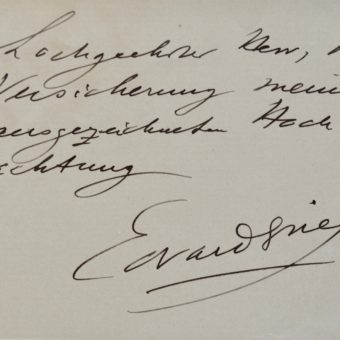 Hochgeehrter Herr,
Versicherung mein
ausgezeichneten Hoch
achtung
Edvard Grieg